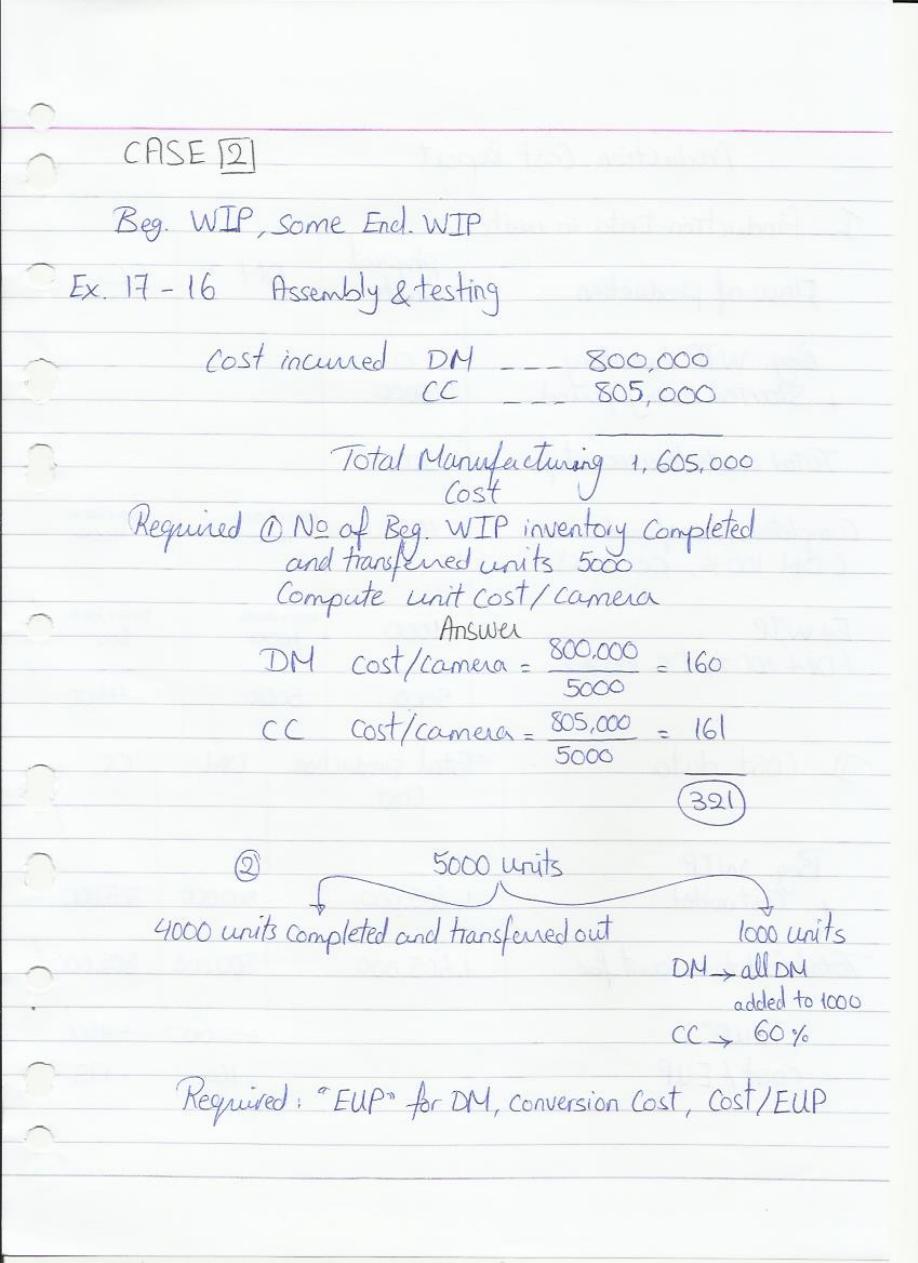 CASE 2
Beg. WIP, Some End. WIP
Ex. 17-16 Assembly & testing
Cost incurred DM --- 800,000
CC --- 805,000
Total Manufacturing 1,605,000
Cost
Required ① No of Beg. WIP inventory Completed
and transferred units 5000
Compute unit cost/camera
Answer
DM cost/camera = 800,000 / 5000 = 160
CC Cost/camera = 805,000 / 5000 = 161
321
② 5000 units
4000 units completed and transferred out 1000 units
DM → all DM
added to 1000
CC → 60%
Required: "EUP" for DM, conversion Cost, Cost/EUP